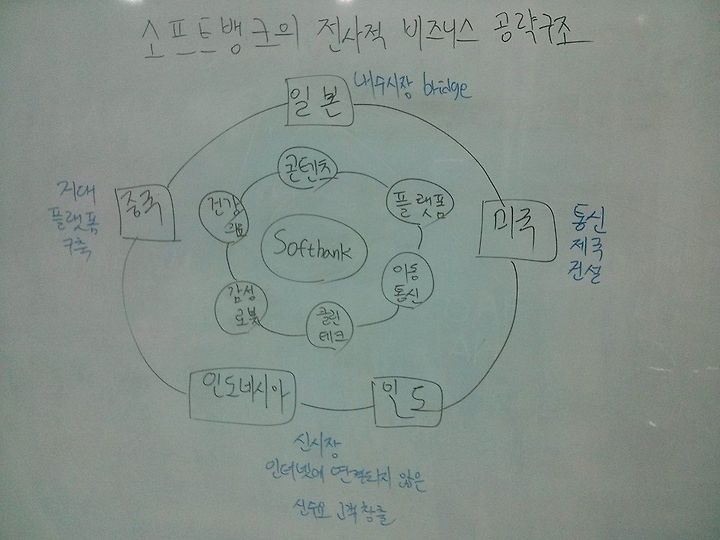 소프트뱅크의 전사적 비즈니스 공략구조
일본
내수시장 bridge
콘텐츠
중국
지대
플랫폼
구축
건강
플랫폼
미국
통신
제국
건설
Softbank
이동
통신
감성
로봇
클린
테크
인도네시아
인도
신시장
인터넷에 연결되지 않은
신수요 고객창출